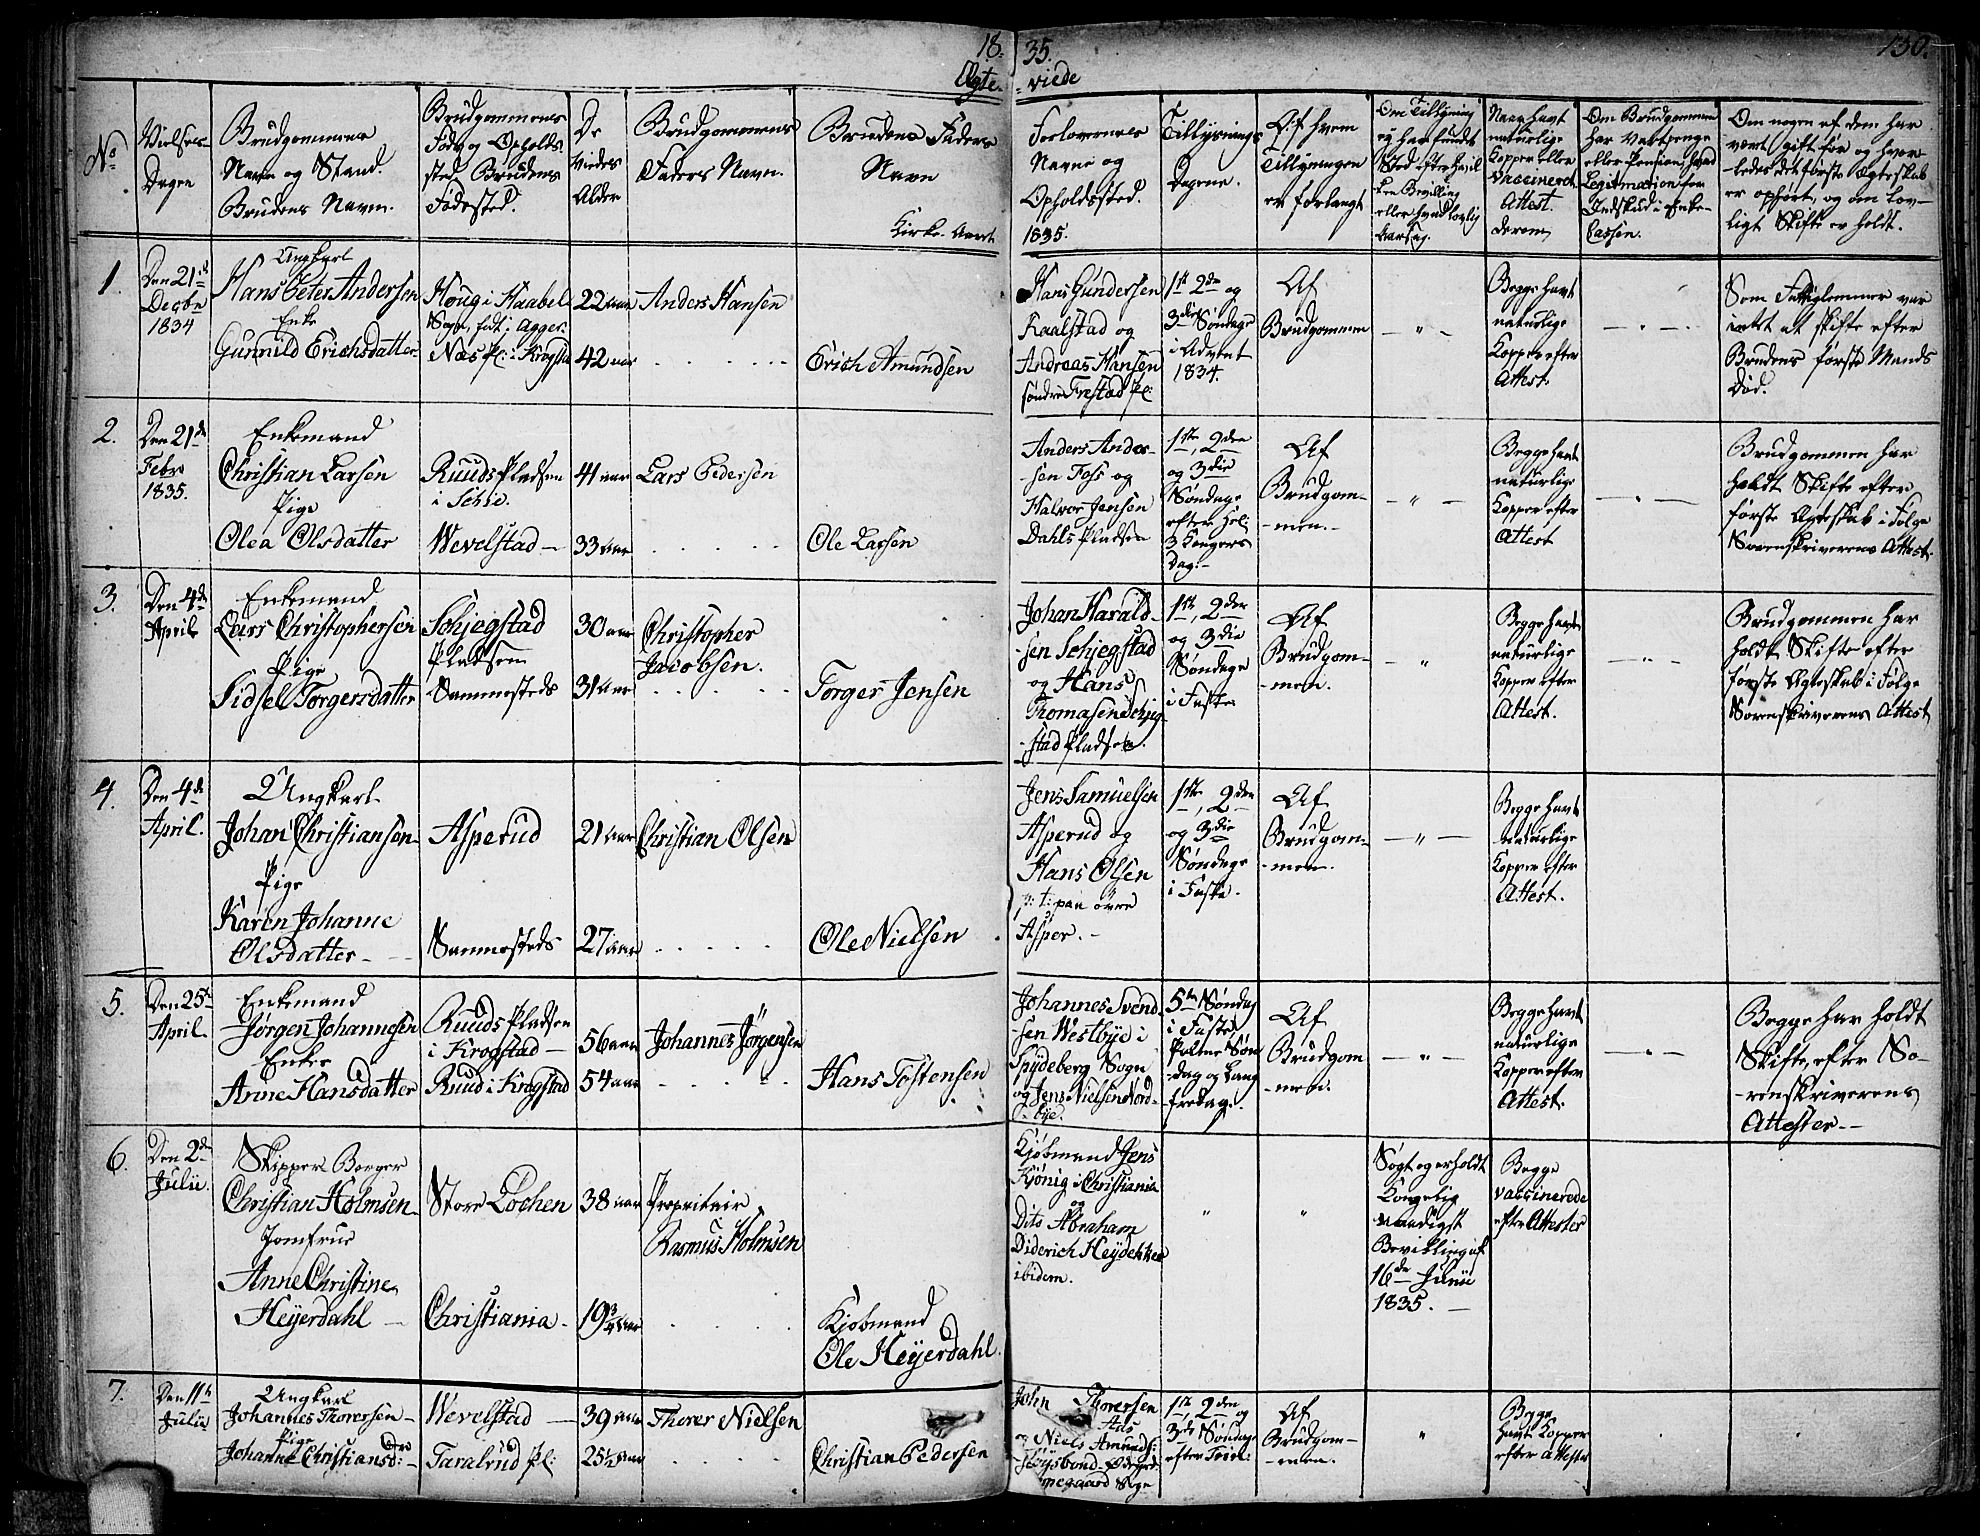 18 35. 130.
Ægte- viede
No
Vielses- Dagen
Brudgommens Navn og Stand. Brudens Navn.
Brudgommens Føde og Opholds sted. Brudens Fødested.
De Viedes Alder
Brudgommens Faders Navn.
Brudens Faders Navn
Forlovernes Navne og Opholdssted. 1835.
Tillysnings Dagene.
Af hvem Tillysningen er forlangt
Om Tillysning ej har fundet Sted efter hvilken Bevilling eller hvad lovlig Aarsag.
Naar havt naturlige Kopper eller Vaccineret. Attest derom
Om Brudgommen har Vartpenge eller Pension, hvad Legitimation for Indskud i Enke-Cassen.
Om nogen af dem har været gift før og hvorledes det første Ægteskab er ophørt, og om lovligt Skifte er holdt.
1.
Den 21de Decbr 1834
Ungkarl
Hans Peter Andersen
Enke
Gunnild Erichsdatter
Houg i Haabel Sogn, født i Agger.
Næs Pl: i Krogstad
22 aar
42 aar
Anders Hansen
Erich Amundsen
Hans Gundersen
Kaalstad og
Andreas Hansen
søndre Frestad Pl:
1ste 2den og
3die Søndage
i Advent
1834.
Af
Brudgommen
- " -
Begge havt
naturlige
Kopper efter
Attest.
Som Fattiglemmer var
intet at skifte efter
Brudens første Mands
Død.
2.
Den 21de
Febr
1835.
Enkemand
Christian Larsen
Pige
Olea Olsdatter
Ruuds Pladsen
i Schie.
Wevelstad -
41 aar
33 aar
Lars Pedersen
Ole Larsen
Anders Ander-
sen Foss og
Halvor Jensen
Dahls Pladsen
1ste, 2den
og 3die
Søndage
efter Hel:
3 Kongers
Dag. -
Af
Brudgom-
men. -
- " -
Begge havt
naturlige
Kopper efter
Attest
Brudgommen har
holdt Skifte efter
første Ægteskab i Følge
Sorenskriverens Attest.
3.
Den 4de
April
Enkemand
Lars Christophersen
Pige
Sidsel Torgersdatter
Schjegstad
Pladsen
Sammesteds
30 aar
31 aar
Christopher
Jacobsen.
Torger Jensen
Johan Harald-
sen Schjegstad
og Hans
Thomasen Schjeg
stad Pladsen.
1ste, 2den
og 3die
Søndage
i Faste
Af
Brudgom-
men.
- "
Begge havt
naturlige
Kopper efter
Attest.
Brudgommen har
holdt Skifte efter
første Ægteskab i Følge
Sorenskriverens Attest
4.
Den 4de
April.
Ungkarl
Johan Christiansen
Pige
Karen Johanne
Olsdatter -
Asperud
Sammesteds
21 aar
27 aar
Christian Olsen
Ole Nielsen
Jens Samuelsen
Asperud og
Hans Olsen
p: t: paa øvre
Asper. -
1ste, 2den
og 3die
Søndage
i Faste.
Af
Brudgom-
men.
- " -
Begge havt
naturlige
Kopper efter
Attest.
5.
Den 25de
April.
Enkemand
Jørgen Johannesen
Enke
Anne Hansdatter
Ruuds Pladsen
i Krogstad -
Ruud i Krogstad
56 aar
54 aar
Johannes Jørgensen
Hans Tostensen
Johannes Svend-
sen Westbye i
Spydeberg Sogn
og Jens Nielsen Nord-
bye.
5te Søndag
i Faste,
Palme Søn
dag og Lang
fredag.
Af
Brudgom
men.
- " -
Begge havt
naturlige
Kopper efter
Attest.
Begge har holdt
Skifte, efter So-
renskriverens
Attester -
6.
Den 2den
Julii.
Skipper Borger
Christian Holmsen
Jomfrue
Anne Christine
Heyerdahl -
Store Lochen
Christiania -
38 aar
19 3/4 aar
Proprietair
Rasmus Holmsen
Kjøbmand
Ole Heyerdahl.
Kjøbmand Jens
Kjønig i Christiania
og
Dito Abraham
Diderich Heydekker
ibidem.
"
"
Søgt og erholdt
Kongelig
naadigst
Bevilling af
16de Junii
1835. -
Begge
vaccinerede
efter Attester
7.
Den 11te
Julii
Ungkarl
Johannes Thorersen -
Pige
Johanne Christiansd: -
Wevelstad -
Taralrud Pl:
39 aar
25 1/2 aar
Thorer Nielsen
Christian Pedersen
John Thorersen
Aas
og Niels Amunds:
1ste, 2den og
3die Søndag
efter Trin:
Af
Brudgom-
men.
"
Begge
havt Kopper
efter Attester